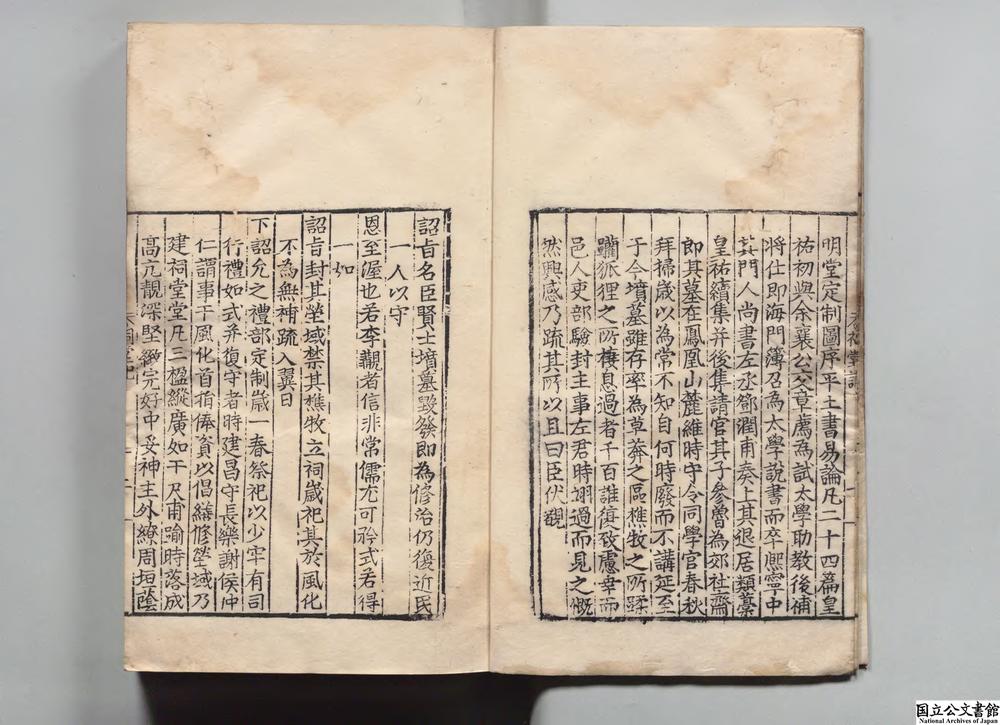 明堂定制圖序平土書易論凡二十四篇皇
祐初與余襄公交章薦為試太學助教後補
將仕郎海門簿召為太學說書而卒熈寧中
其門人尚書左丞鄧潤甫奏上其退居類藁
皇祐續集并後集請官其子參魯為郊社齋
郎其墓在鳳凰山麓維時守令同學官春秋
拜掃歲以為常不知自何時廢而不講延至
于今墳墓雖存卒為草莽之區樵牧之所蹂
躪狐狸之所棲息過者千百誰復致慮幸而
邑人吏部驗封主事左君時翊過而見之慨
然興感乃疏其所以且曰臣伏覩
詔旨名臣賢士墳墓毀發即為修治仍復近民
一人以守
恩至渥也若李覯者信非常儒尤可矜式若得
一如
詔旨封其塋域禁其樵牧立祠歲祀其於風化
不為無補疏入翼日
下詔允之禮部定制歲一春祭祀以少牢有司
行禮如式并復守者時建昌守長樂謝侯仲
仁謂事干風化首捐俸貲以倡繕修塋域乃
建祠堂堂凡三楹縱廣如干尺甫踰時落成
高亢靚深堅緻完好中妥神主外繚周垣蔭
國立公文書館
National Archives of Japan